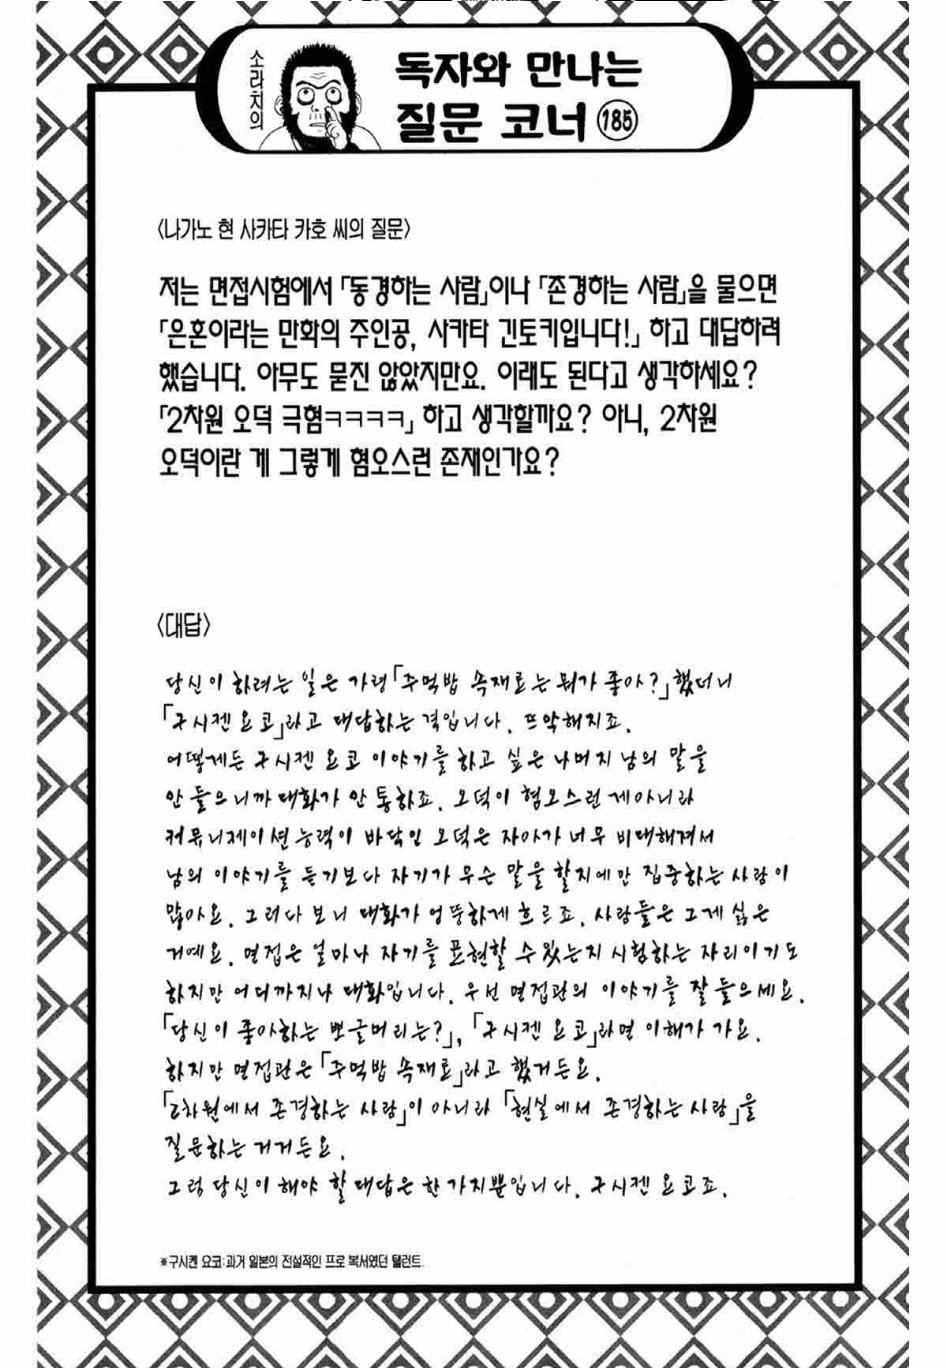 소라치의
독자와 만나는
질문 코너 185
〈나가노 현 사카타 카호 씨의 질문〉
저는 면접시험에서 「동경하는 사람」이나 「존경하는 사람」을 물으면
「은혼이라는 만화의 주인공, 사카타 긴토키입니다!」 하고 대답하려
했습니다. 아무도 묻진 않았지만요. 이래도 된다고 생각하세요?
「2차원 오덕 극혐ㅋㅋㅋㅋ」 하고 생각할까요? 아니, 2차원
오덕이란 게 그렇게 혐오스런 존재인가요?
〈대답〉
당신이 하려는 일은 가령 「주먹밥 속재료는 뭐가 좋아?」 했더니
「구시켄 요코」라고 대답하는 격입니다. 뜨악해지죠.
어떻게든 구시켄 요코 이야기를 하고 싶은 나머지 남의 말을
안 들으니까 대화가 안 통하죠. 오덕이 혐오스런 게 아니라
커뮤니케이션 능력이 바닥인 오덕은 자아가 너무 비대해져서
남의 이야기를 듣기보다 자기가 무슨 말을 할지에만 집중하는 사람이
많아요. 그러다 보니 대화가 엉뚱하게 흐르죠. 사람들은 그게 싫은
거예요. 면접은 얼마나 자기를 표현할 수 있는지 시험하는 자리이기도
하지만 어디까지나 대화입니다. 우선 면접관의 이야기를 잘 들으세요.
「당신이 좋아하는 뽀글머리는?」, 「구시켄 요코」라면 이해가 가요.
하지만 면접관은 「주먹밥 속재료」라고 했거든요.
「2차원에서 존경하는 사람」이 아니라 「현실에서 존경하는 사람」을
질문하는 거거든요.
그럼 당신이 해야 할 대답은 한 가지뿐입니다. 구시켄 요코죠.
※구시켄 요코: 과거 일본의 전설적인 프로 복서였던 탤런트.